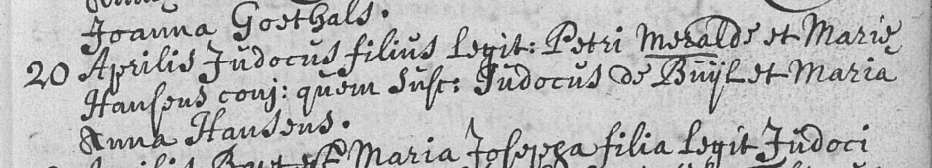 Joanna Goethals.
20 Aprilis Judocus filius legit: Petri Meralde et Mariæ
Hansens conj: quem susc: Judocus de Buÿl et Maria
Anna Hansens.
Maria Josepha filia legit Judoci